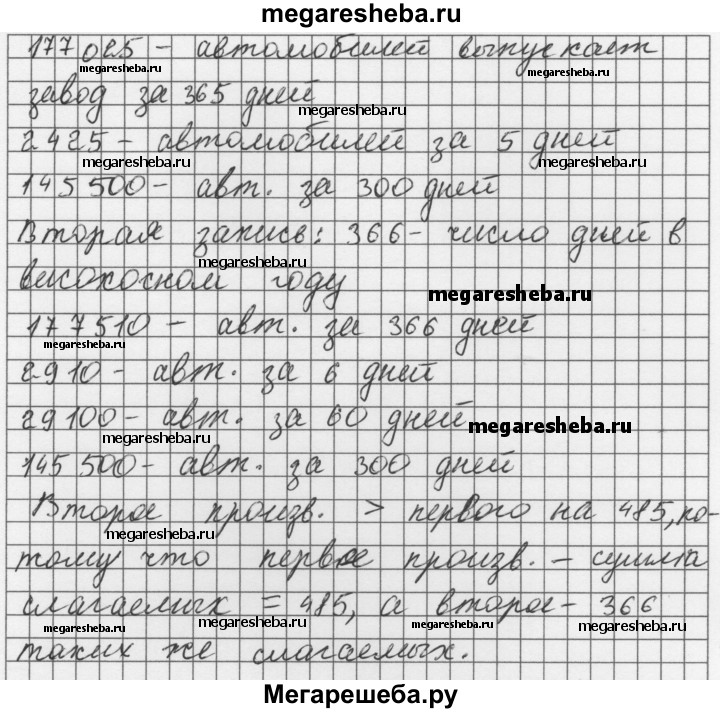 megaresheba.ru
177 025 – автомобилей выпускает
megaresheba.ru megaresheba.ru
завод за 365 дней
megaresheba.ru
2425 – автомобилей за 5 дней
megaresheba.ru megaresheba.ru
145 500 – авт. за 300 дней
Вторая запись: 366 – число дней в
megaresheba.ru
високосном году
megaresheba.ru
177510 – авт. за 366 дней
megaresheba.ru
2910 – авт. за 6 дней
29100 – авт. за 60 дней
megaresheba.ru megaresheba.ru
145 500 – авт. за 300 дней
Второе произв. > первого на 485, по-
megaresheba.ru
тому что первое произв. – сумма
megaresheba.ru
слагаемых = 485, а второе – 366
megaresheba.ru megaresheba.ru megaresheba.ru
таких же слагаемых.
Мегарешеба.ру